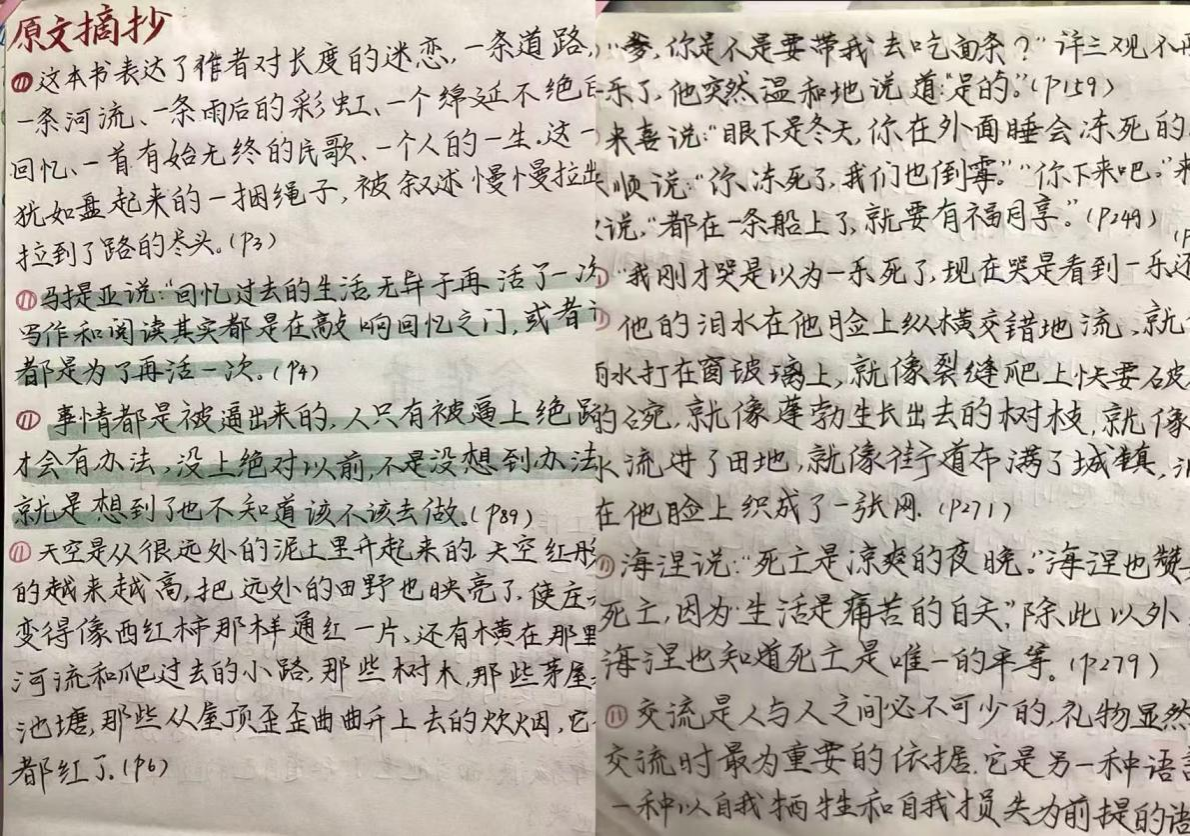 原文摘抄
这本书表达了作者对长度的迷恋,一条道路、
一条河流、一条雨后的彩虹、一个绵延不绝
回忆、一首有始无终的民歌、一个人的一生。这一
犹如盘起来的一捆绳子,被叙述慢慢拉出
拉到了路的尽头。(P3)
马提亚说:“回忆过去的生活,无异于再活了一次
写作和阅读其实都是在敲响回忆之门,或者
都是为了再活一次。(P4)
事情都是被逼出来的,人只有被逼上绝路
才会有办法,没上绝对以前,不是没想到办法
就是想到了也不知道该不该去做。(P89)
天空是从很远处的泥土里升起来的,天空红彤
的越来越高,把远处的田野也映亮了,使庄
变得像西红柿那样通红一片,还有横在那里
河流和爬过去的小路,那些树木,那些茅屋
池塘,那些从屋顶歪歪曲曲升上去的炊烟,它
都红了。(P6)
“爹,你是不是要带我去吃面条?”许三观不再
乐了,他突然温和地说道:“是的。”(P159)
来喜说:“眼下是冬天,你在外面睡会冻死的
顺说:“你冻死了,我们也倒霉。”“你下来吧。”来
说,“都在一条船上了,就要有福同享。”(P249)
“我刚才哭是以为一乐死了,现在哭是看到一乐还
他的泪水在他脸上纵横交错地流,就
雨水打在窗玻璃上,就像裂缝爬上快要破
的碗,就像蓬勃生长出去的树枝,就像
水流进了田地,就像街道布满了城镇,
在他脸上织成了一张网.(P271)
海涅说:“死亡是凉爽的夜晚。”海涅也赞
死亡,因为“生活是痛苦的白天”,除此以外
海涅也知道死亡是唯一的平等。(P279)
交流是人与人之间必不可少的,礼物显然
交流时最为重要的依据.它是另一种语言
一种以自我牺牲和自我损失为前提的语